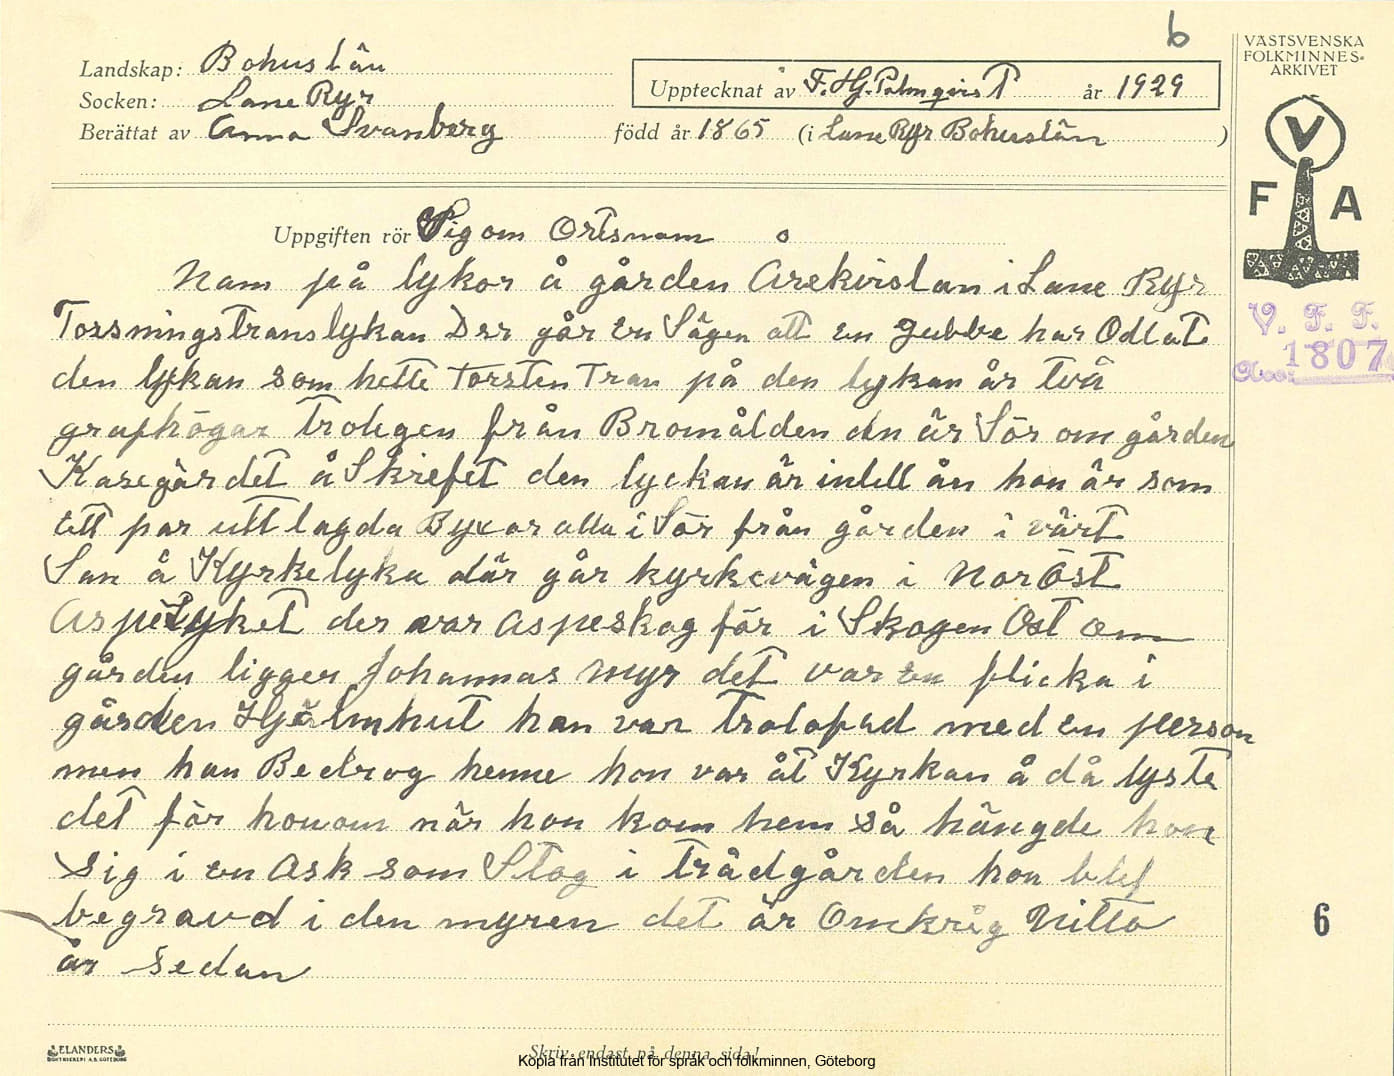 6
Landskap: Bohuslän
Socken: Lane Ryr
Berättat av Anna Svanberg
Upptecknat av F. Hj. Palmqvist år 1929
född år 1865 (i Lane Ryr Bohuslän )
VÄSTSVENSKA
FOLKMINNES-
ARKIVET
V
F A
V. F. F.
1807
Uppgiften rör Sägom Ortsnam
Nam på lykor å gården Arekvislan i Lane Ryr
Torsningstranslykan Der går en Sägen att en gubbe har Odlat
den lykan som hette Torsten Tran på den lykan är två
grafhögar Troligen från Bronsålden den är Sör om gården
Kasegärdet å Skrefet den lyckan är intill ån hon är som
ett par uttlagda Byxor alla i Sör från gården i värt
San å Kyrkelyka där går kyrkevägen i NorÖst
Aspelyket der var aspeskog för i Skogen Ost om
gården ligger Johannas myr det var en flicka i
gården Hjälmhut hon var Trolofad med en person
men han Bedrog henne hon var åt Kyrkan å då lyste
det för honom när hon kom hem så hängde hon
sig i en Ask som Stog i trädgården hon blef
begravd i den myren det är Omkrig Nitto
år sedan
6
ELANDERS
BOKTRYCKERI A.B. GÖTEBORG
Skriv endast på denna sida!
Kopia från Institutet för språk och folkminnen, Göteborg